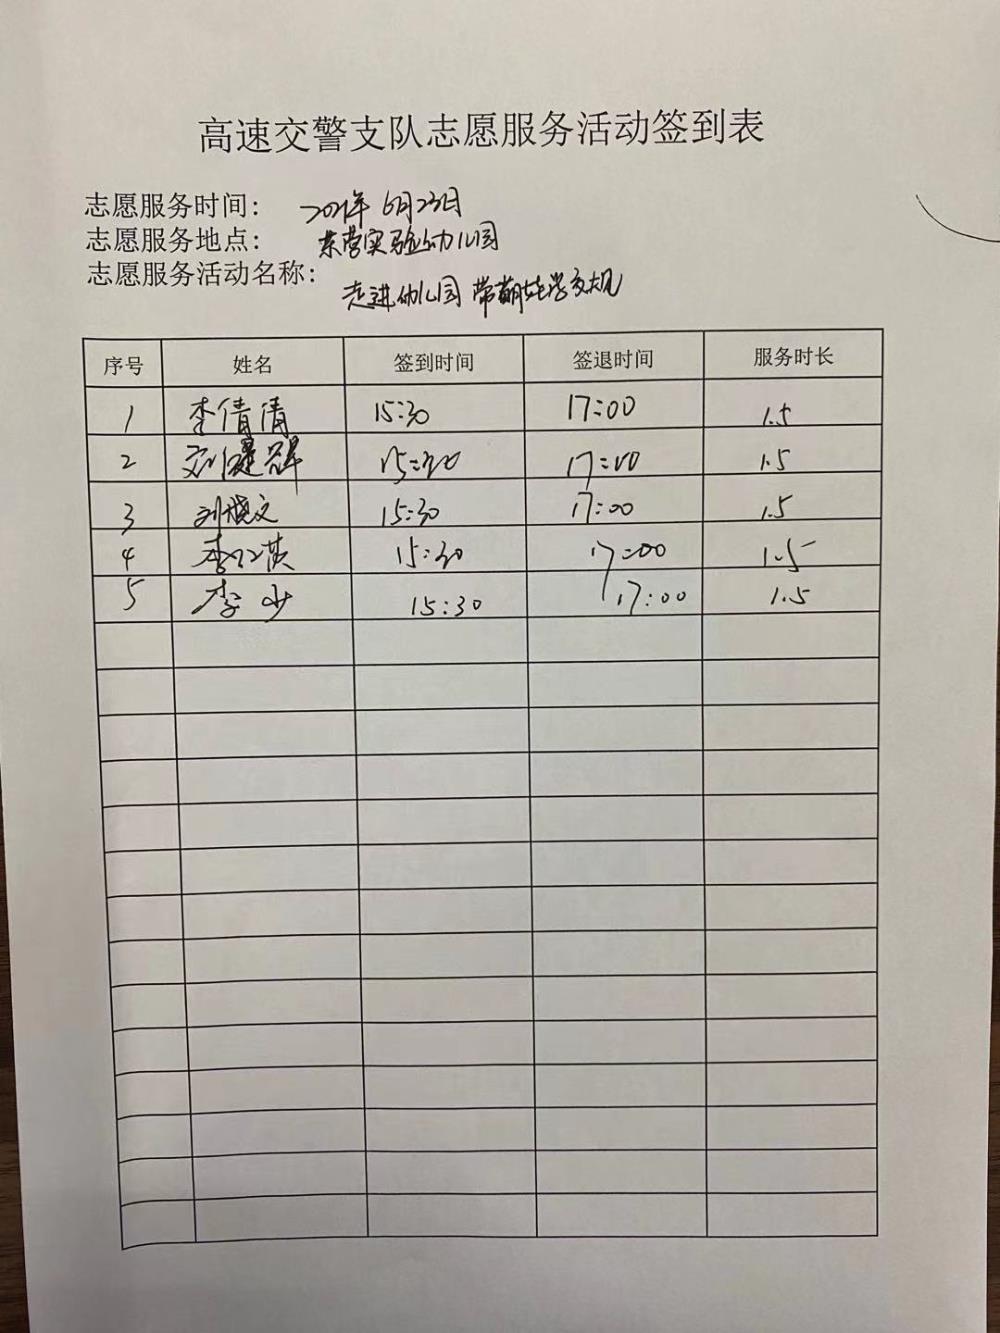 高速交警支队志愿服务活动签到表
志愿服务时间： 2021年6月23日
志愿服务地点： 东营实验幼儿园
志愿服务活动名称： 走进幼儿园 带萌娃学交规
序号 姓名 签到时间 签退时间 服务时长
1 李倩倩 15:30 17:00 1.5
2 刘建 15:30 17:00 1.5
3 刘晓文 15:30 17:00 1.5
4 李 15:30 17:00 1.5
5 李少 15:30 17:00 1.5